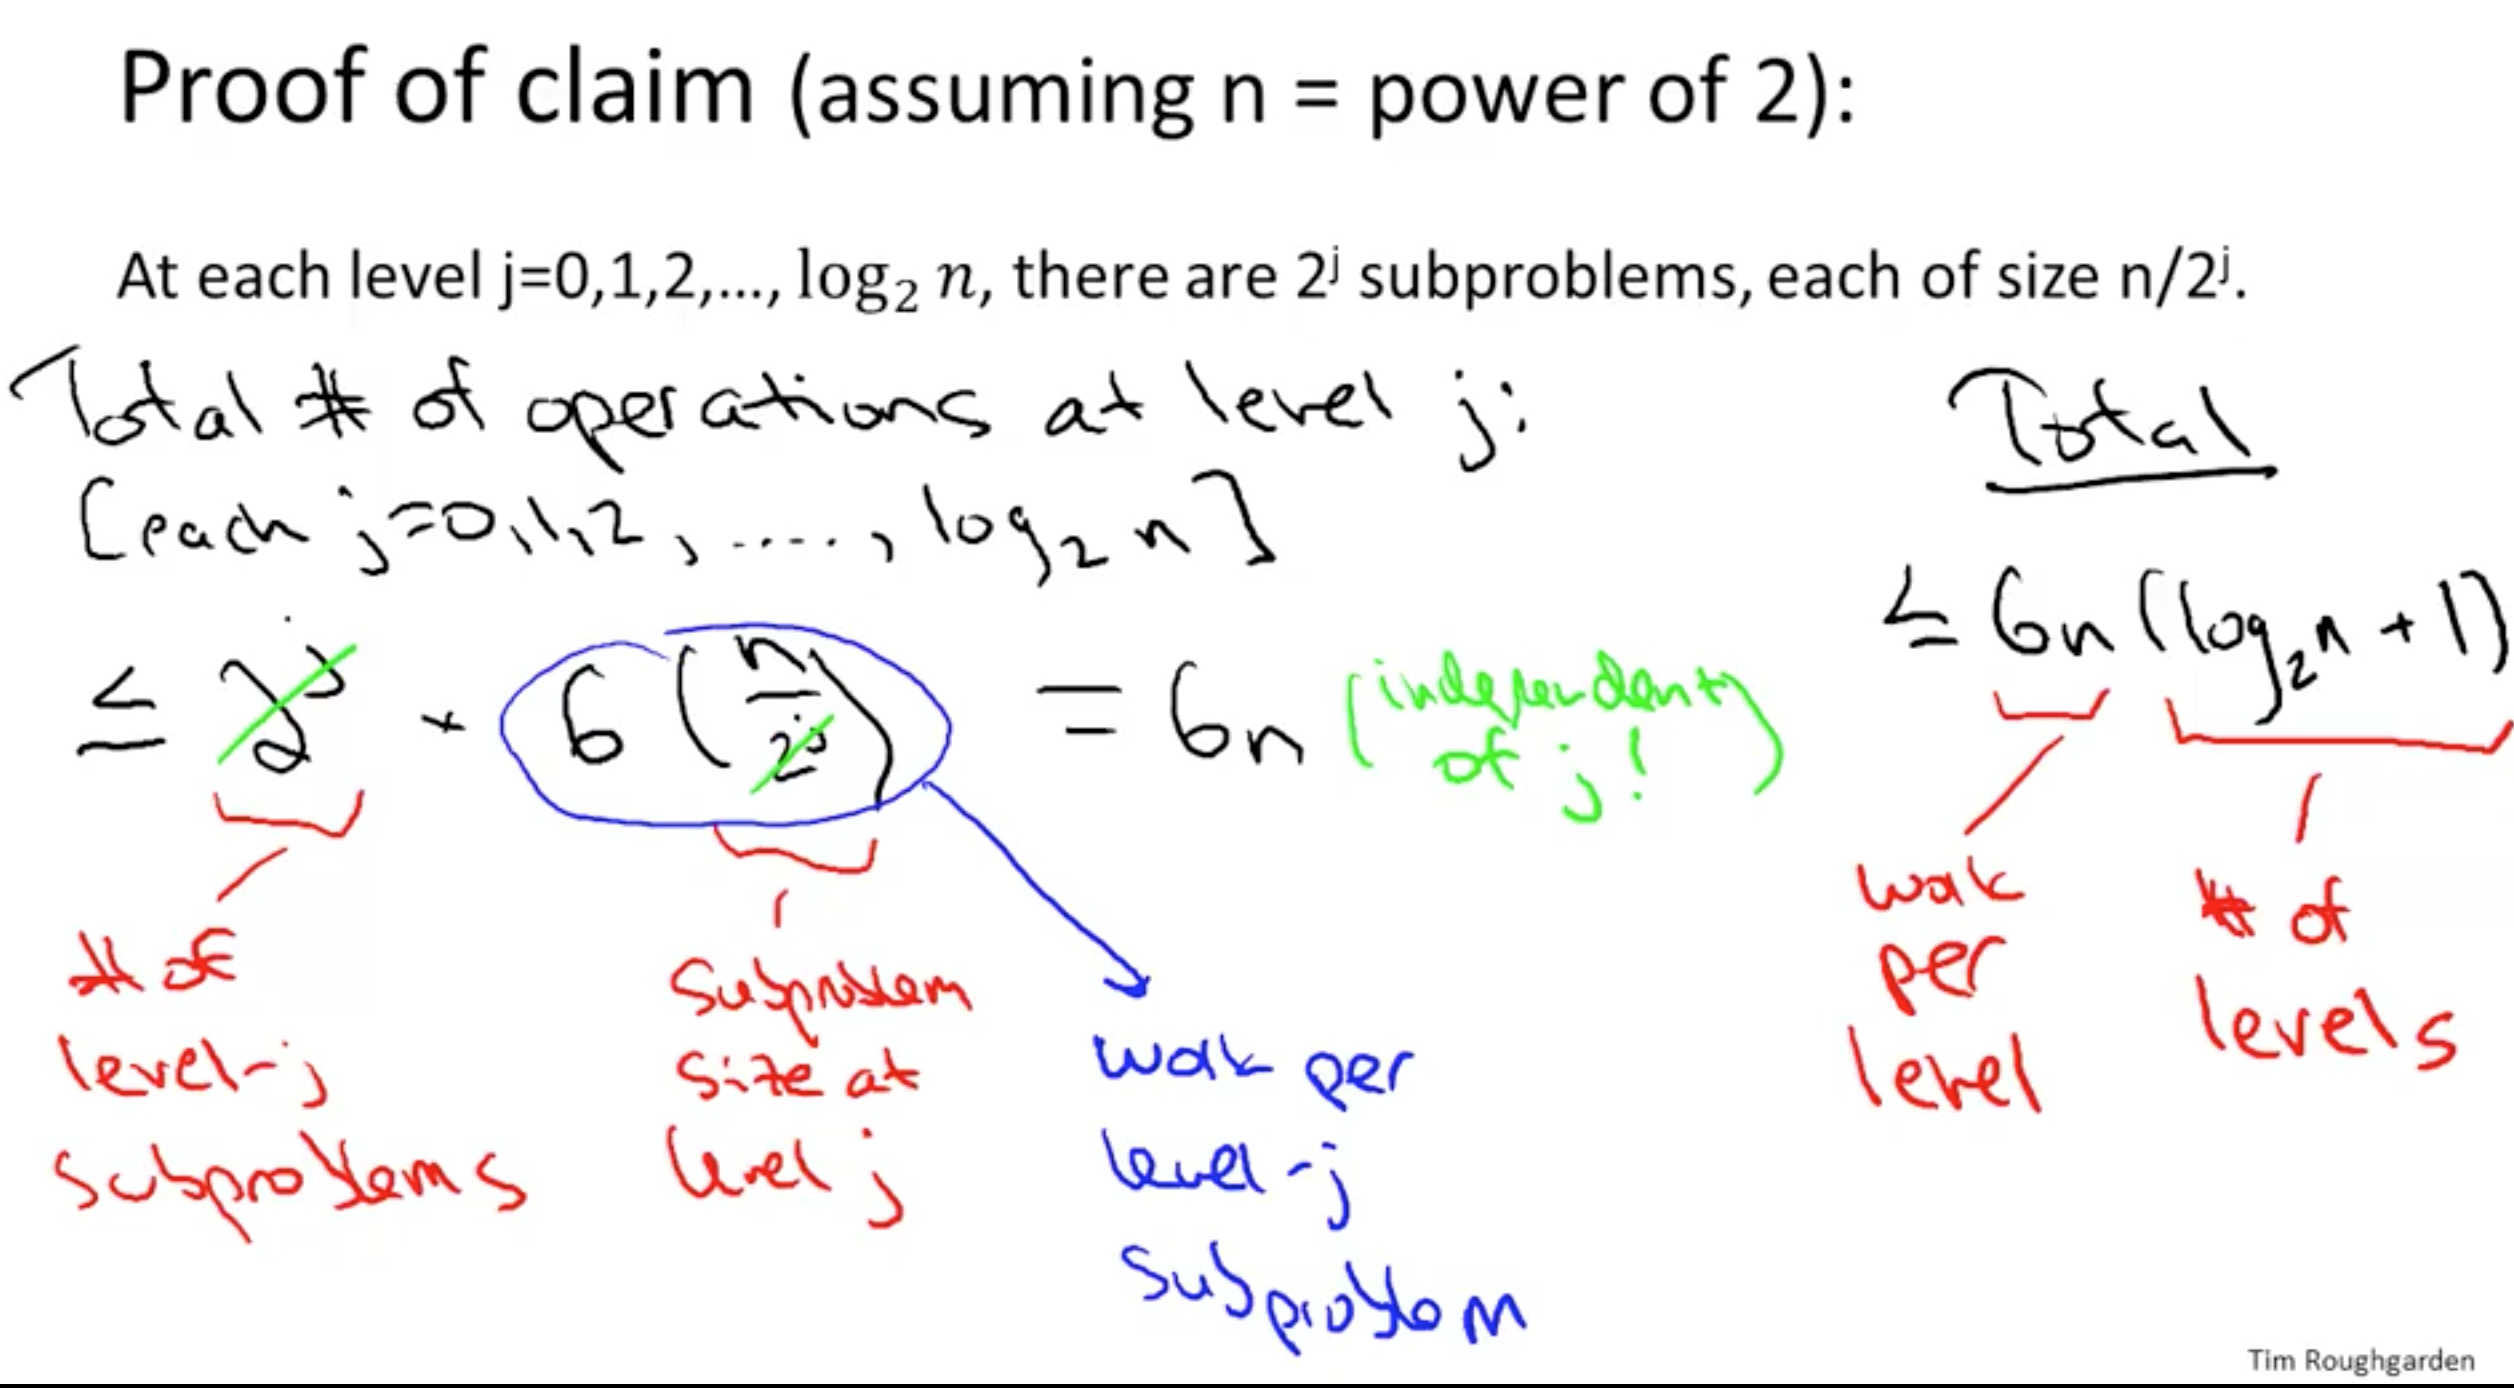 Proof of claim (assuming n = power of 2):
At each level j=0,1,2,..., log₂ n, there are 2ʲ subproblems, each of size n/2ʲ.
Total # of operations at level j:
[each j=0,1,2, ....., log₂ n]
≤ 2ʲ * 6 (n/2ʲ) = 6n (independent
of j!)
# of
level-j
subproblems
Subproblem
size at
level j
work per
level-j
subproblem
Total
≤ 6n (log₂n + 1)
work
per
level
# of
levels
Tim Roughgarden